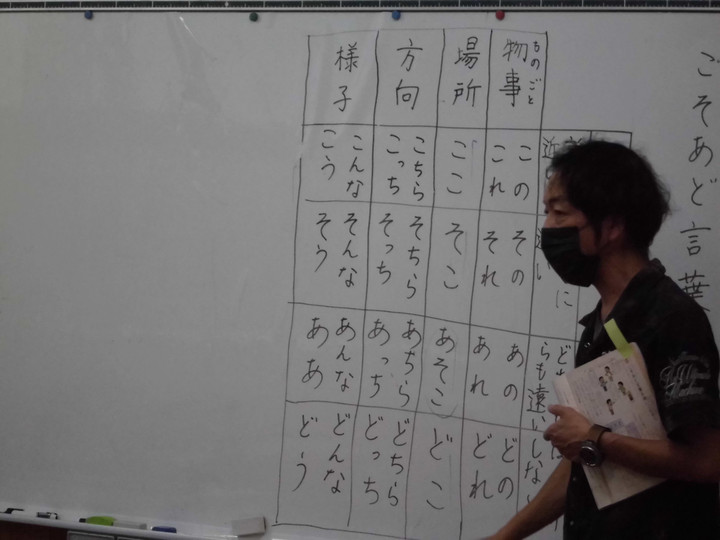 こそあど言葉
ものごと
物事
この
これ
その
それ
あの
あれ
どの
どれ
場所
ここ
そこ
あそこ
どこ
方向
こちら
こっち
そちら
そっち
あちら
あっち
どちら
どっち
様子
こんな
こう
そんな
そう
あんな
ああ
どんな
どう